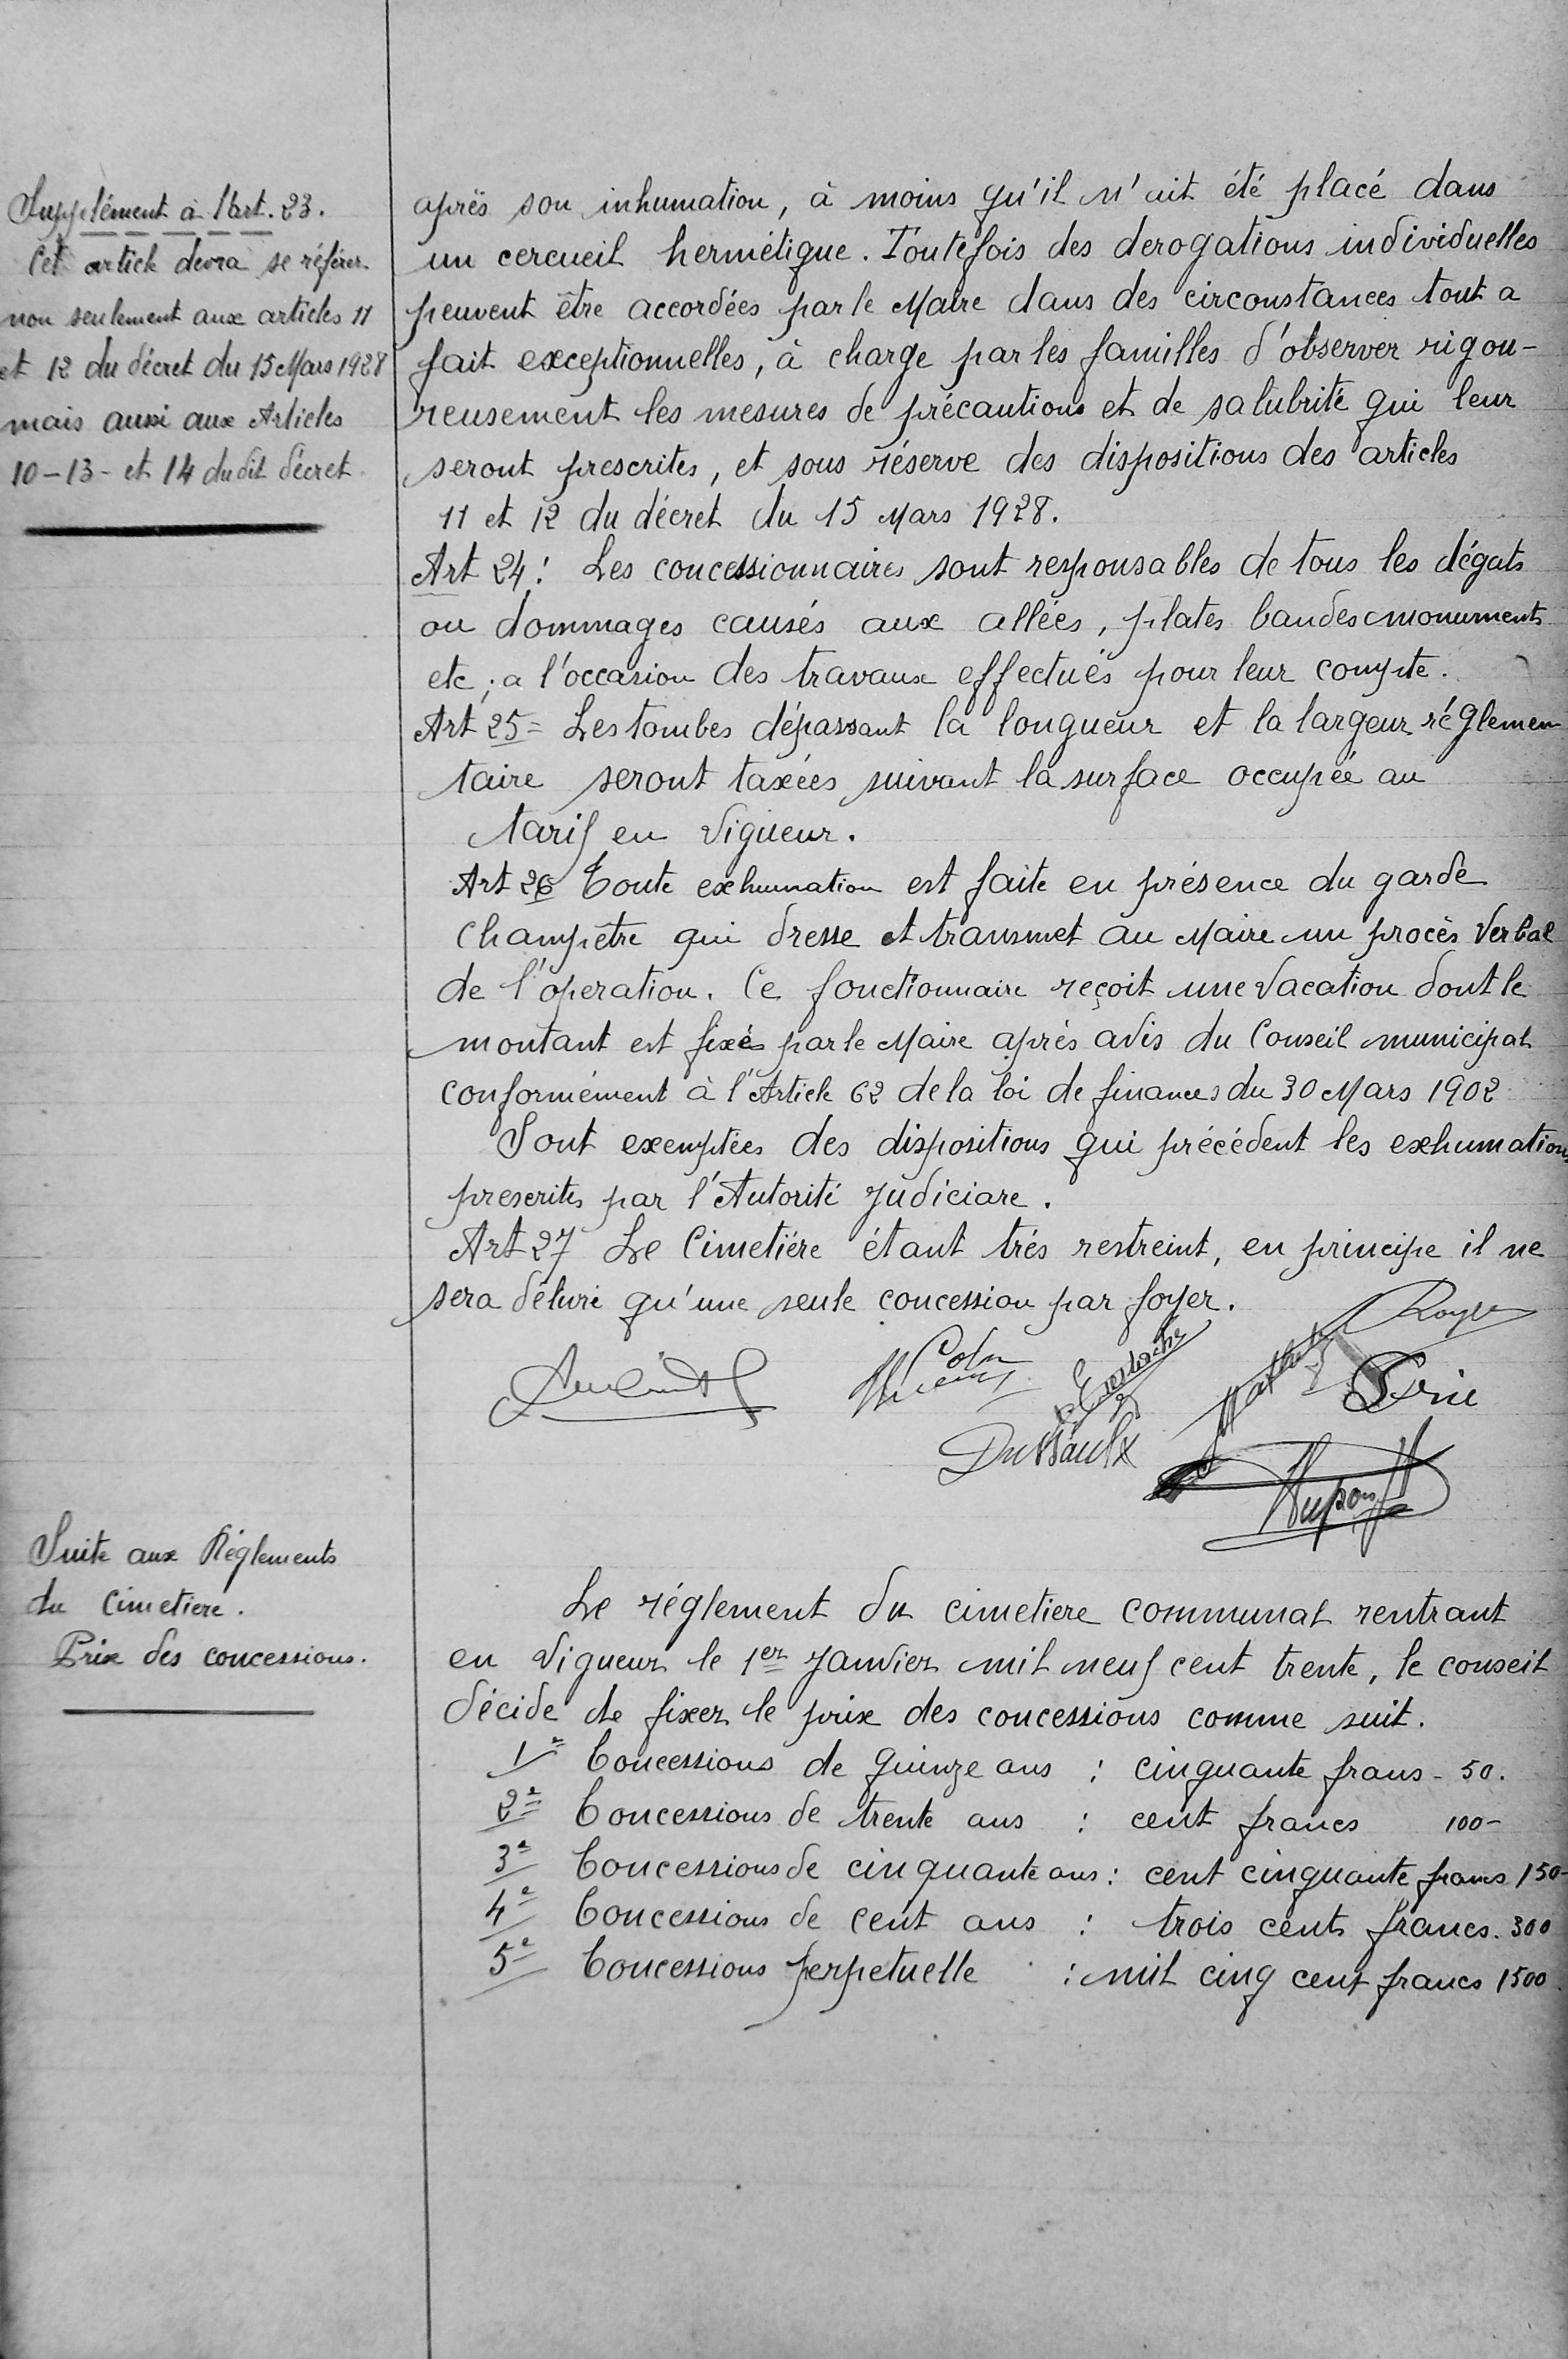 Supplément à l'art. 23.
Cet article devra se référer
non seulement aux articles 11
et 12 du décret du 15 Mars 1928
mais aussi aux Articles
10-13- et 14 dudit décret
après son inhumation, à moins qu'il n'ait été placé dans
un cercueil hermétique. Toutefois des derogations individuelles
peuvent être accordées par le Maire dans des circonstances tout a
fait exceptionnelles, à charge par les familles d'observer rigou-
reusement les mesures de précautions et de salubrité qui leur
seront prescrites, et sous réserve des dispositions des articles
11 et 12 du décret du 15 Mars 1928.
Art 24: Les concessionnaires sont responsables de tous les dégats
ou dommages causés aux allées, plates bandes monuments
etc; a l'occasion des travaux effectués pour leur compte.
Art 25= Les tombes dépassant la longueur et la largeur réglemen
taire seront taxées suivant la surface occupée au
tarif en vigueur.
Art 26 Toute exhumation est faite en présence du garde
Champêtre qui dresse et transmet au Maire un procès Verbal
de l'operation. Ce fonctionnaire reçoit une vacation dont le
montant est fixés par le Maire après avis du Conseil municipal
conformément à l'Article 62 de la loi de finances du 30 Mars 1902
Sont exemptées des dispositions qui précédent les exhumations
prescrites par l'Autorité Judiciare.
Art 27 Le Cimetiére étant trés restreint, en principe il ne
sera délivré qu'une seule concession par foyer.
Colin
Eustache
Royer
Brie
Dussaulx
Dupont
Suite aux Réglements
du Cimetiere.
Prix des concessions.
Le réglement du cimetiere communal rentrant
en vigueur le 1er Janvier mil neuf cent trente, le conseil
décide de fixer le prix des concessions comme suit.
1e Concessions de quinze ans : cinquante frans - 50.
2e Concessions de trente ans : cent francs 100-
3e Concessions de cinquante ans : cent cinquante francs 150-
4e Concessions de cent ans : trois cents francs. 300
5e Concessions perpetuelle : mil cinq cent francs 1500